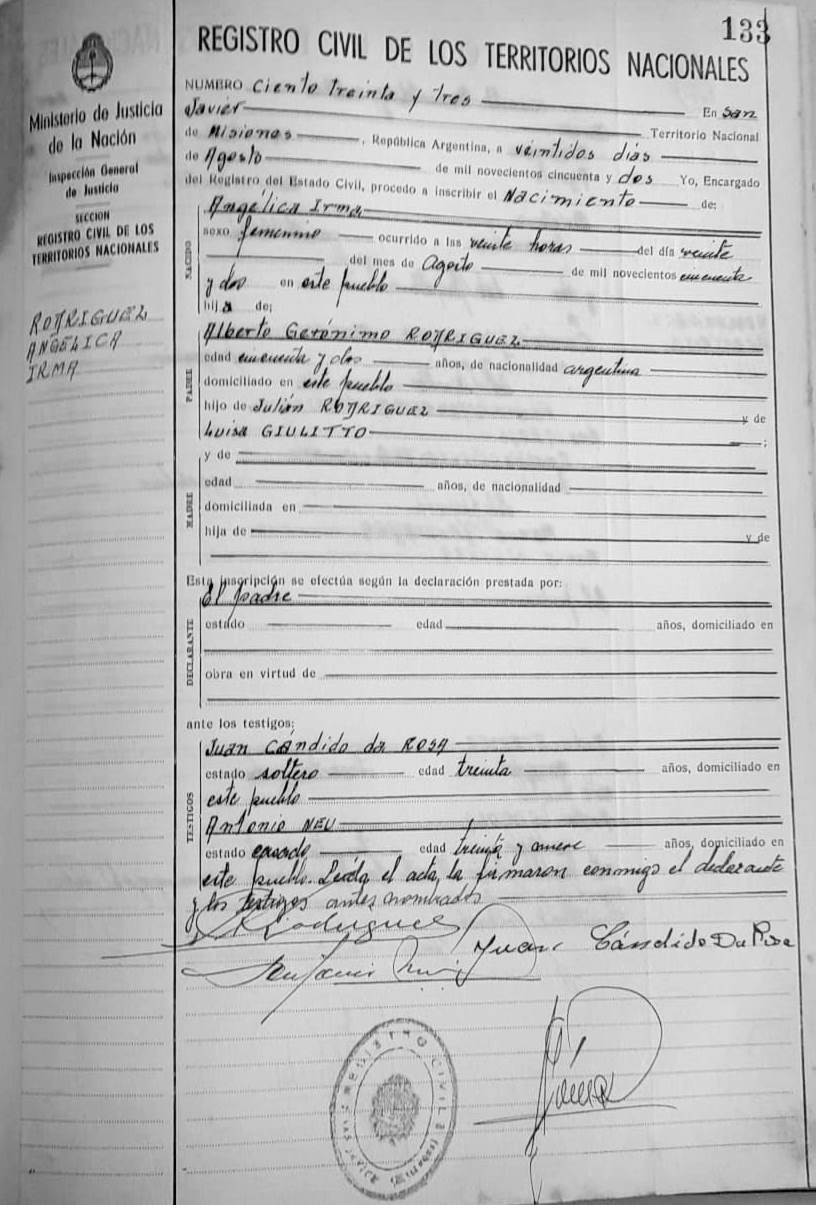 133
REGISTRO CIVIL DE LOS TERRITORIOS NACIONALES
Ministerio de Justicia
de la Nación
Inspección General
de Justicia
SECCION
REGISTRO CIVIL DE LOS
TERRITORIOS NACIONALES
RODRIGUEZ
ANGÉLICA
IRMA
NUMERO Ciento treinta y tres En San
Javier Territorio Nacional
de Misiones, República Argentina, a veintidos dias
de Agosto de mil novecientos cincuenta y dos Yo, Encargado
del Registro del Estado Civil, procedo a inscribir el Nacimiento de:
NACIDO
Angélica Irma
sexo femenino ocurrido a las veinte horas del día veinte
del mes de Agosto de mil novecientos cincuenta
y dos en este pueblo
hija de:
PADRE
Alberto Gerónimo RODRIGUEZ
edad cincuenta y dos años, de nacionalidad argentina
domiciliado en este pueblo
hijo de Julián RODRIGUEZ y de
Luisa GIULITTO ;
MADRE
y de
edad años, de nacionalidad
domiciliada en
hija de y de
Esta inscripción se efectúa según la declaración prestada por:
DECLARANTE
El padre
estado edad años, domiciliado en
obra en virtud de
ante los testigos:
TESTIGOS
Juan Cándido da ROSA
estado soltero edad treinta años, domiciliado en
este pueblo
Antonio NEU
estado casado edad treinta y años, domiciliado en
este pueblo. Leída el acta, la firmaron conmigo el declarante
y los testigos antes nombrados
Rodriguez
Juan Cándido Da Rosa
Antonio
REGISTRO CIVIL
SAN JAVIER (Misiones)